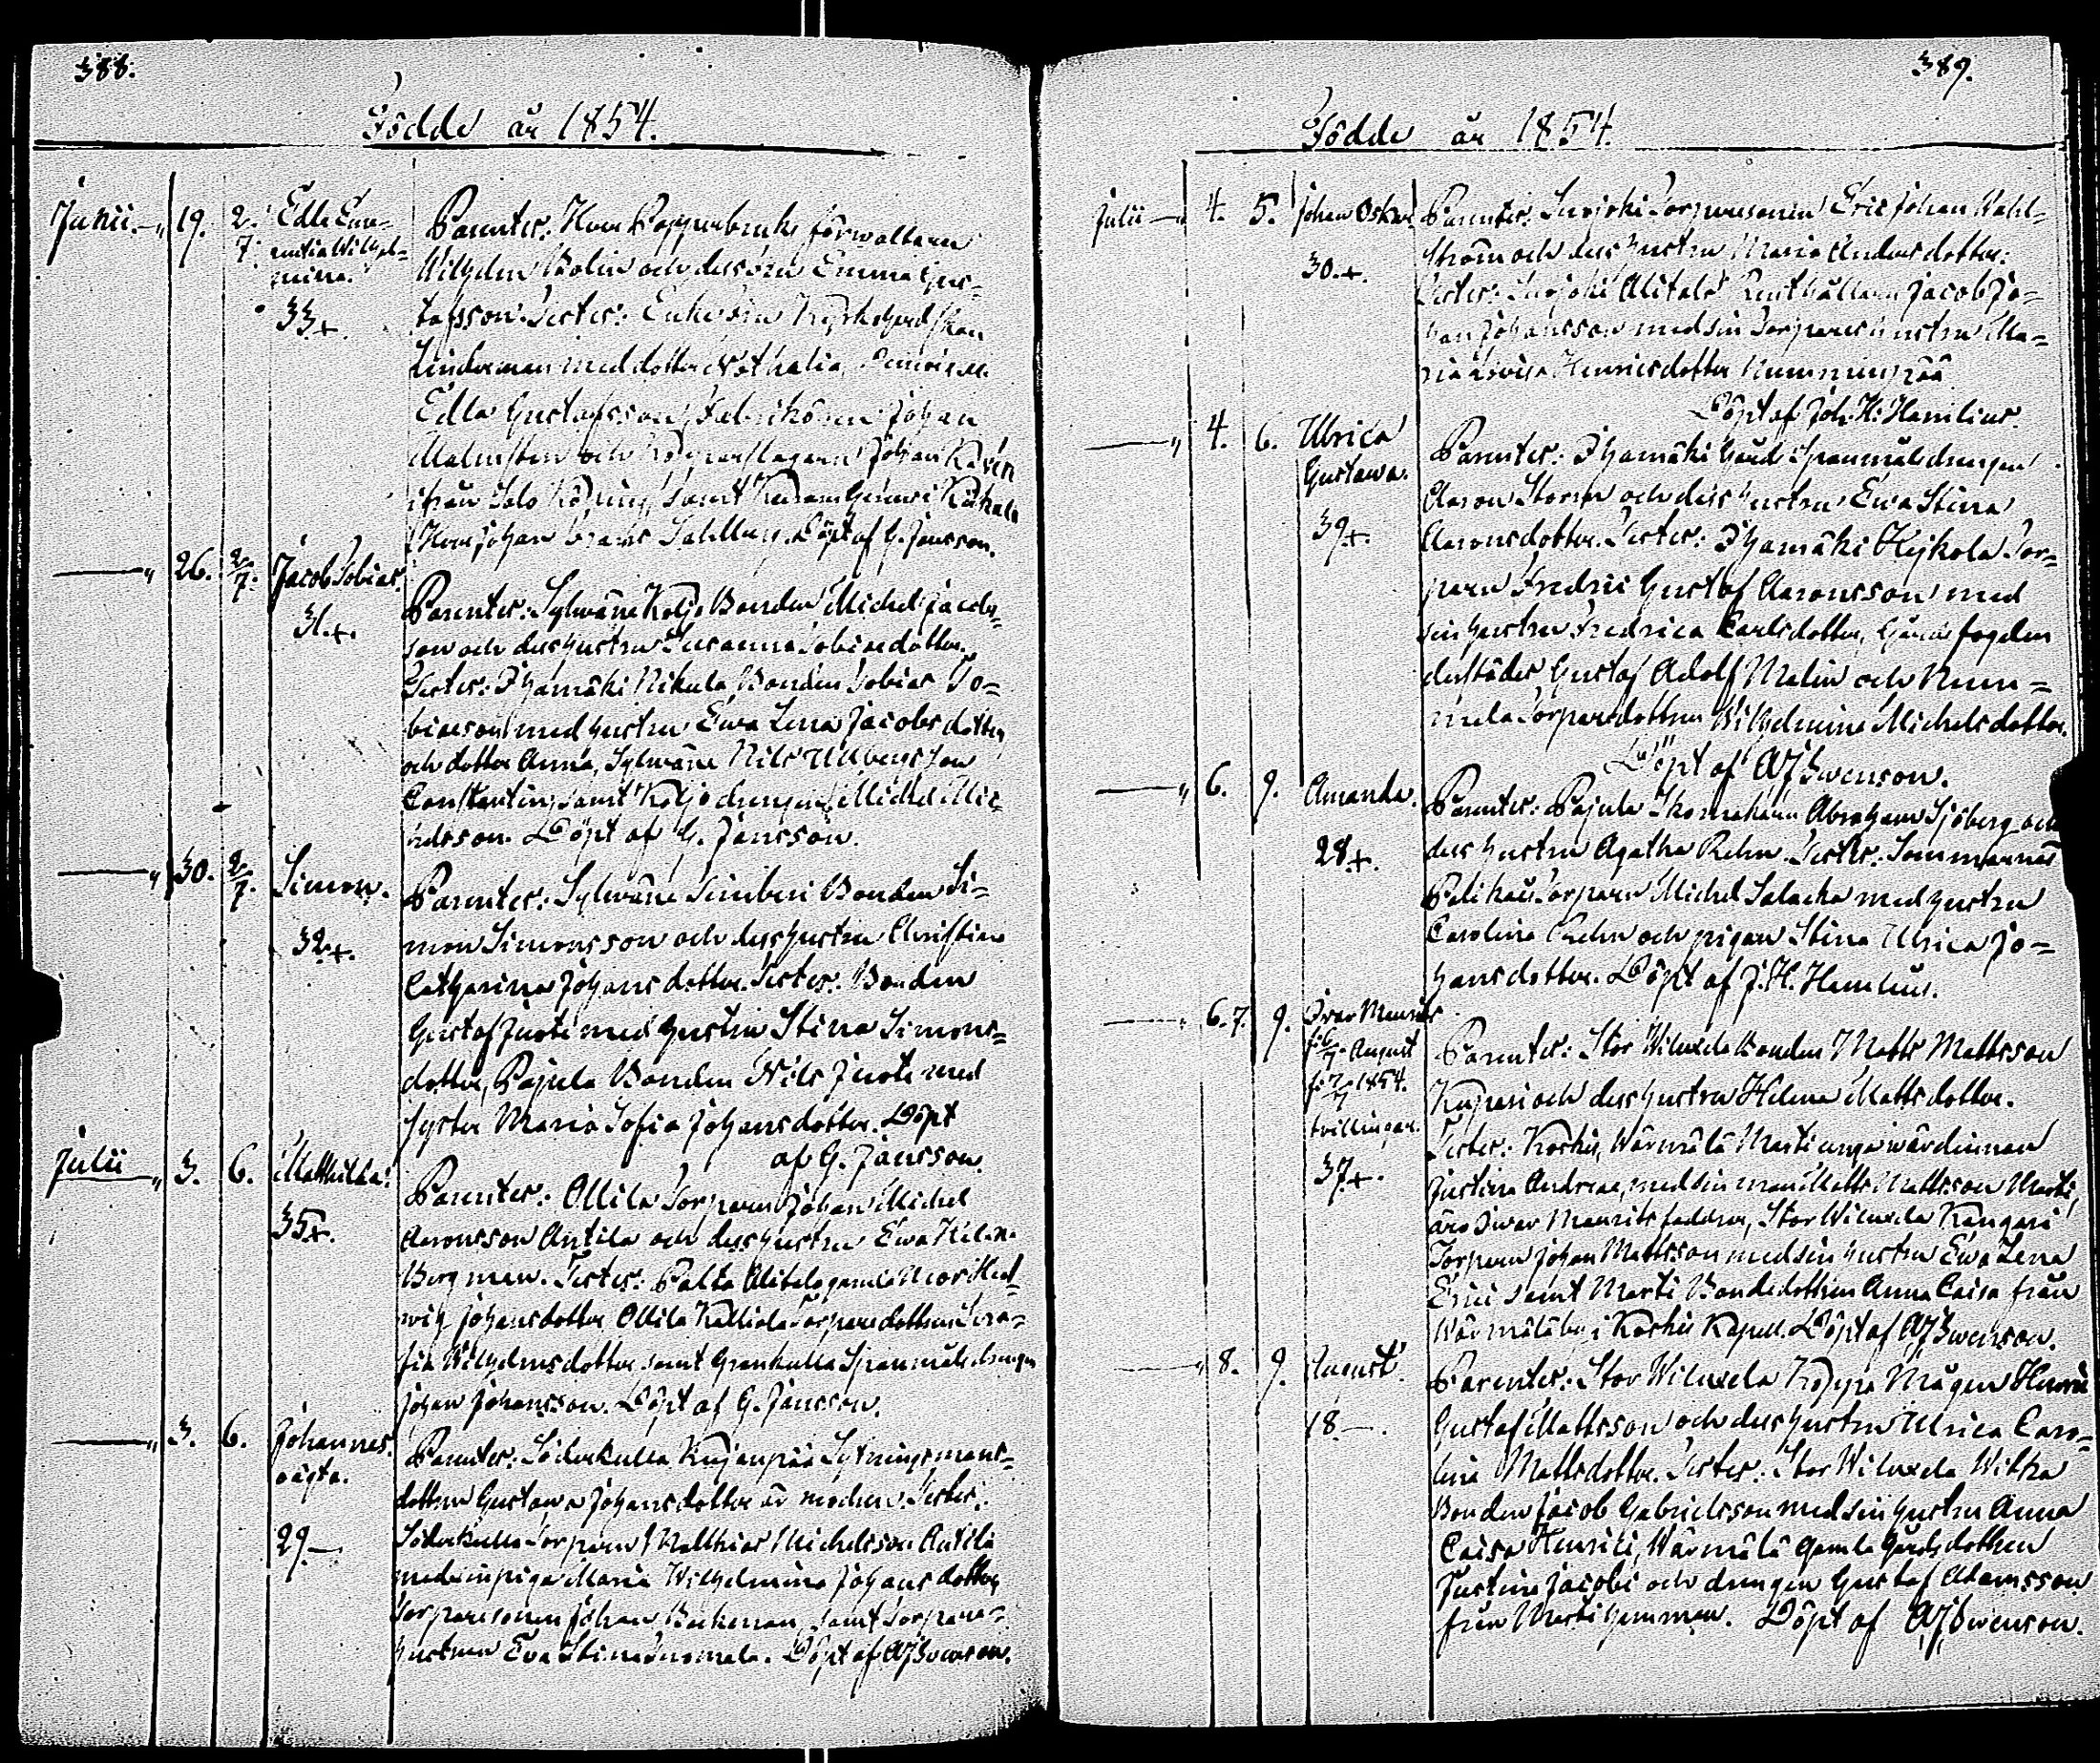 388.
Födde år 1854.
Junii. 19. 2/7. Edla Emerentia Wilhelmina. 33+.
Parenter: Kopparbruks förwaltaren
Wilhelm Bolin och dess fru Emma Gus-
tafsson. Testes: Enkefru
Linderman med dotter Nathalia,
Edla Gustafsson, Fabrikören Johan
Malmsten och Kopparslagaren Johan
ifrån Salo Köping, samt
Johan Sahlberg. Döpt af G. Jansson.
— 26. 2/7. Jacob Tobias. 31.+.
Parenter: Sylwäne Koljo Bonden Michel Jacobs-
son och dess hustru Susanna Tobiaedotter.
Testes: Ihamäki Nikula Bonden Tobias To-
biaeson med hustru Ewa Lena Jacobsdotter
och dotter Anna, Sylwäne Nils
Constantin, samt Koljo drengen Michel Mic-
helsson. Döpt af G. Jansson.
— 30. 2/7. Simon. 32+.
Parenter: Sylwäne Bonden Si-
mon Simonsson och dess hustru Christina
Catharina Johansdotter. Testes: Bonden
Gustaf Juoti med hustru Stina Simons-
dotter, Pajula Bonden Nils Juoti med
syster Maria Sofia Johansdotter. Döpt
af G. Jansson.
Julii 3. 6. Mathilda. 35+.
Parenter: Ollila Torparen Johan Michel
Aaronsson Antila och dess hustru Ewa Helena
Bergman. Testes: Palta Alitalo gamla Mor Hed-
wig Johansdotter Ollila Kalliola Torparedottren Sera-
fia Wilhelmsdotter samt Grankulla Spannmåls drengen
Johan Johansson. Döpt af G. Jansson.
— 3. 6. Johannes. oägta. 29.—.
Parenter: Söderkulla Kujanpää Sytningsmans-
dottren Gustawa Johansdotter är modren. Testes:
Söderkulla Torparen Matthias Michelsson Antila
med sin piga Maria Wilhelmina Johansdotter,
Torparesonen Johan Backman, samt Torpare-
hustrun Ewa Stina Suomela. Döpt af AJSwenson.
389.
Födde år 1854.
Julii — 4. 5. Johan Oskar. 30.+.
Parenter: Surjoki Torparesonen Eric Johan Wahl-
ström och dess hustru Maria Andersdotter.
Testes: Surjoki Alitalo Rusthållaren Jacob Jo-
han Johansson med sin Torpareshustru Ma-
ria Lovisa Henricsdotter Nummenpää.
Döpt af Joh. H. Hamilius.
— 4. 6. Ulrica Gustawa. 39+.
Parenter: Ihamäki Gård Spanmålsdrengen
Aaron Storm och dess hustru Ewa Stina
Aaronsdotter. Testes: Ihamäki Hejkola Tor-
paren Fredric Gustaf Aaronsson med
sin hustru Fredrica Carlsdotter, Gårdsfogden
derstädes Gustaf Adolf Malin och Num-
mela Torparedottren Wilhelmina Michelsdotter.
Döpt af AJSwenson.
— 6. 9. Amanda. 28+.
Parenter: Pajula Skomakaren Abraham Sjöberg och
dess hustru Agatha Rehn. Testes: Sommarnäs
Torparen Michel Salacka med hustru
Carolina Rehn och pigan Stina Ulrica Jo-
hansdotter. Döpt af J. H. Hamilius.
— 6. 7. 9. Iwar Maurits f: 6/7. August f: 7/7 1854. tvillingar. 37+.
Parenter: Stor Wiluxela Bonden Matts Mattsson
Kupari och dess hustru Helena Mattsdotter.
Testes: Koskis, Wärmälä Marti unga wärdinnan
Justina Andreae, med sin man Matts Mattsson Marti,
äro Iwar Maurits faddrar, Stor Wiluxela Kangari
Torparen Johan Mattsson med sin hustru Ewa Lena
Erici samt Marti Bondedottren Anna Caisa från
Wärmälä by i Koskis Kapell. Döpt af AJSwenson.
— 8. 9. August. 18.—.
Parenter: Stor Wiluxela Köppä Mågen Henric
Gustaf Mattsson och dess hustru Ulrica Caro-
lina Mattsdotter. Testes: Stor Wiluxela Wilka
Bonden Jacob Gabrielsson med sin hustru Anna
Caisa Henrici, Wärmälä gamla Gårds dottren
Justina Jacobi och drengen Gustaf Adamsson
från Marti hemman. Döpt af AJSwenson.